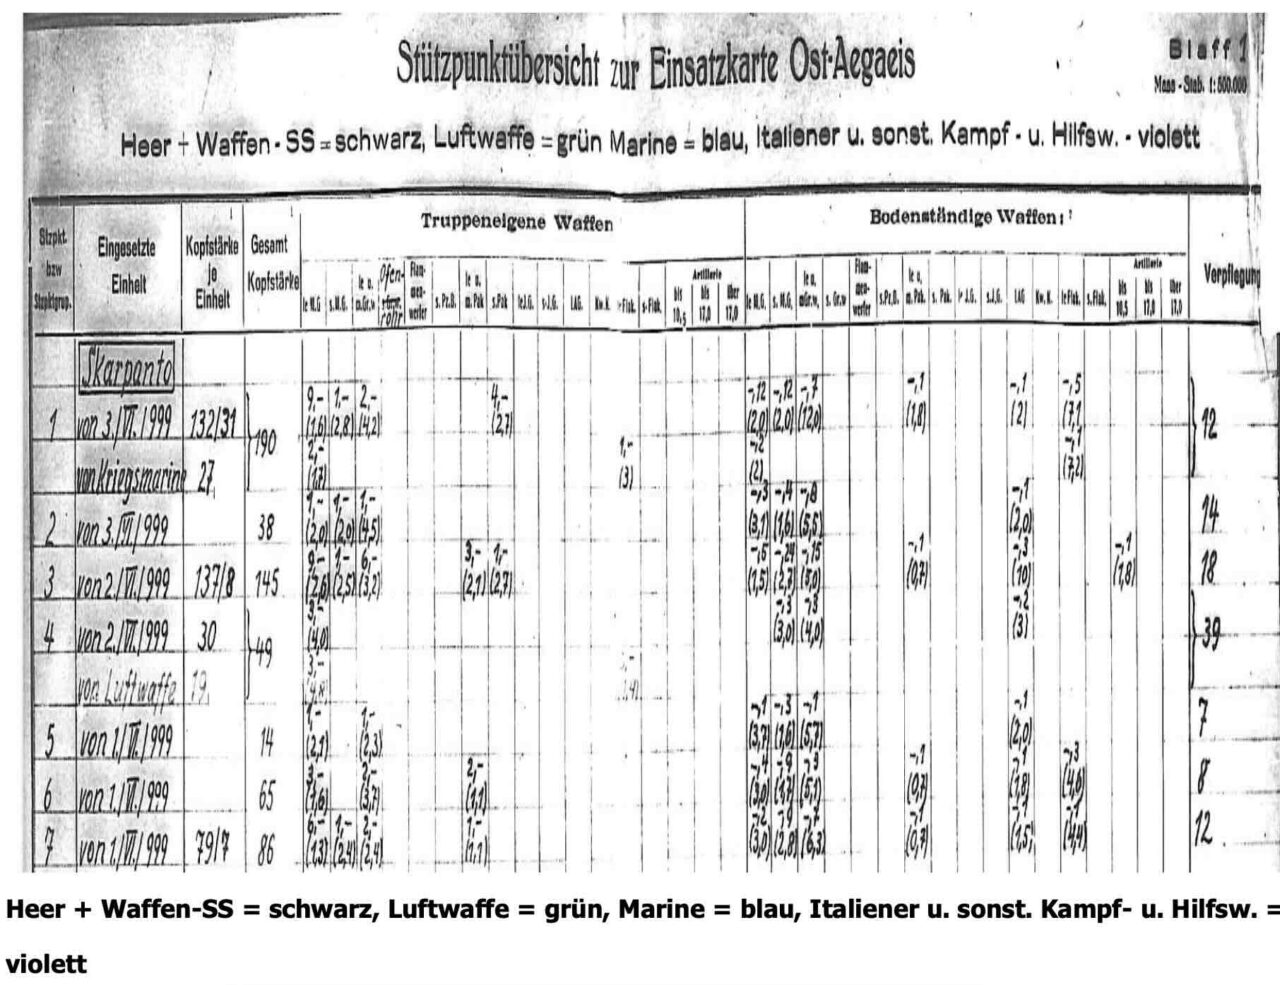 Stützpunktübersicht zur Einsatzkarte Ost-Aegaeis
Blatt 1
Mass-Stab. 1:500.000
Heer + Waffen-SS = schwarz, Luftwaffe = grün Marine = blau, Italiener u. sonst. Kampf- u. Hilfsw. - violett
Stzpkt. bzw Stzpktgrup. Eingesetzte Einheit Kopfstärke je Einheit Gesamt Kopfstärke Truppeneigene Waffen Bodenständige Waffen: Verpflegung
le M.G. s.M.G. le u. m.Gr.w. Ofenrohr Flammenwerfer s.Pz.B. le u. m.Pak s.Pak le.J.G. s.J.G. LAG Kw.K. le Flak. s.Flak. Artillerie bis 10,5 bis 17,0 über 17,0
le M.G. s.M.G. le u. m.Gr.w. s.Gr.w Flammenwerfer s.Pz.B. le u. m.Pak. s.Pak. le J.G. s.J.G. LAG Kw.K. le Flak. s.Flak. Artillerie bis 10,5 bis 17,0 über 17,0
Skarpanto
9,- 1,- 2,- 4,- -,12 -,12 -,7 -,1 -,1 -,5
1 von 3./VI./999 132/31 190 (1,6) (2,8) (4,2) (2,7) (2,0) (2,0) (12,0) (1,8) (2) (7,1) 12
2,- 1,- -,2 -,1
von Kriegsmarine 27 (1,7) (3) (2) (7,2)
1,- 1,- 1,- -,3 -,4 -,8 -,1
2 von 3./VI./999 38 (2,0) (2,0) (4,5) (3,1) (1,6) (5,5) (2,0) 14
9,- 1,- 6,- 3,- 1,- -,5 -,24 -,15 -,1 -,3 -,1
3 von 2./VI./999 137/8 145 (2,6) (2,5) (3,2) (2,1) (2,7) (1,5) (2,3) (3,0) (0,7) (10) (1,8) 18
3,- -,3 -,3 -,2
4 von 2./VI./999 30 49 (4,0) (3,0) (4,0) (3) 39
3,-
von Luftwaffe 19 (4,8)
1,- 1,- -,1 -,3 -,1 -,1
5 von 1./VI./999 14 (2,1) (2,3) (3,7) (1,6) (5,7) (2,0) 7
3,- 2,- 2,- -,4 -,9 -,3 -,1 -,1 -,3
6 von 1./VI./999 65 (1,6) (3,7) (1,1) (3,0) (1,7) (5,1) (0,7) (1,8) (4,6) 8
6,- 1,- 2,- 1,- -,2 -,9 -,7 -,1 -,1 -,1
7 von 1./VI./999 79/7 86 (1,3) (2,4) (2,4) (1,1) (3,0) (2,8) (6,3) (0,7) (1,5) (4,4) 12
Heer + Waffen-SS = schwarz, Luftwaffe = grün, Marine = blau, Italiener u. sonst. Kampf- u. Hilfsw. =
violett